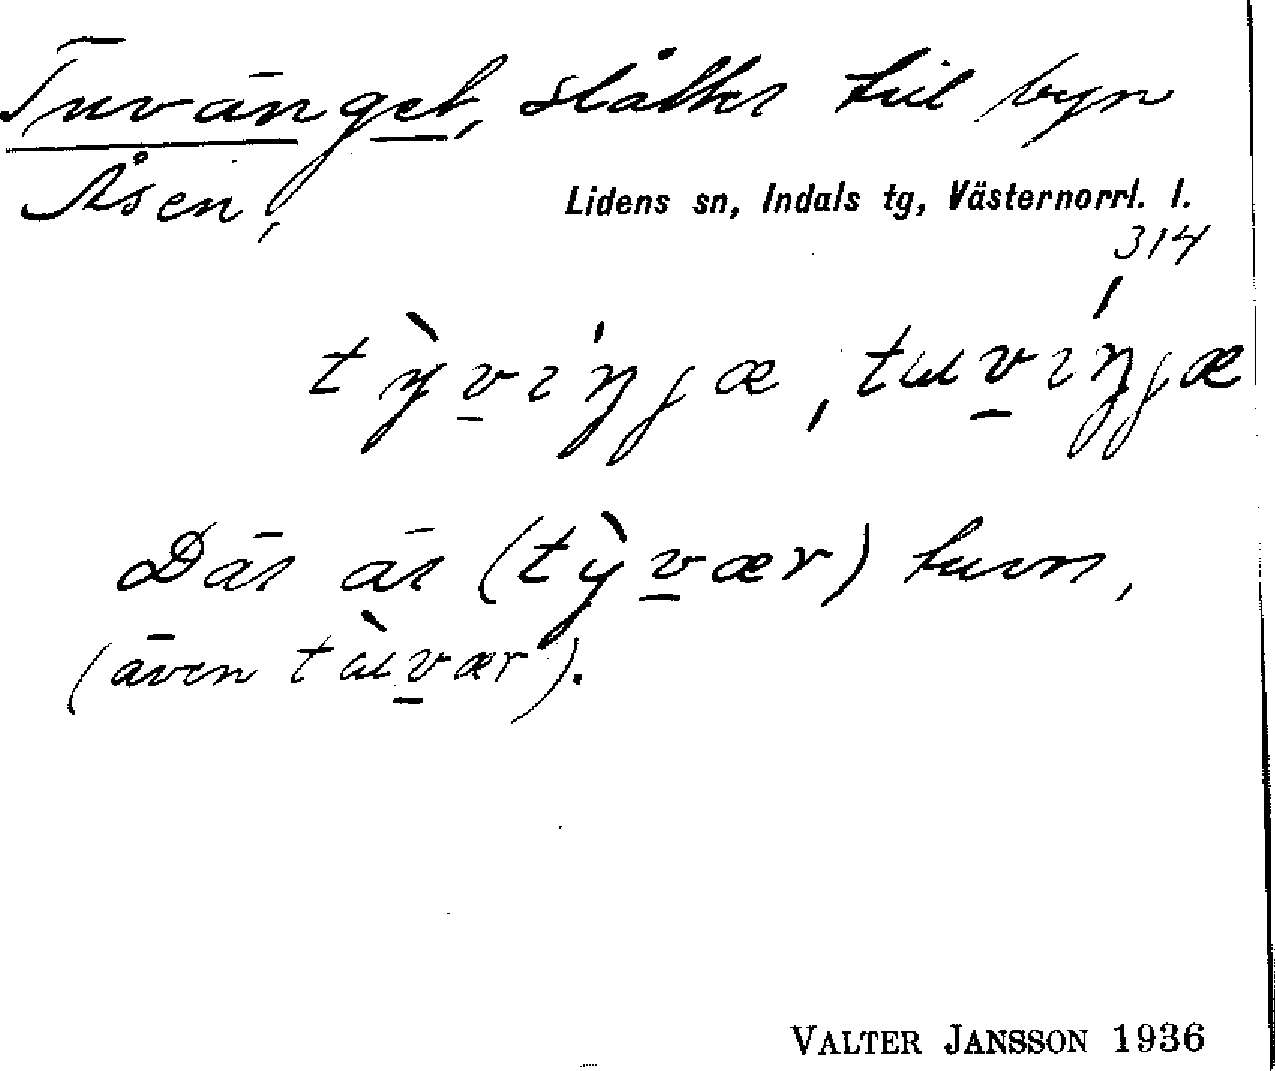 Tuvänget, slåtter till byn
Åsen,
Lidens sn, Indals tg, Västernorrl. l.
314
tỳvıńȷæ, tuvıńȷæ
Där är (tỳvær) tuvor,
(även tùvær).
VALTER JANSSON 1936